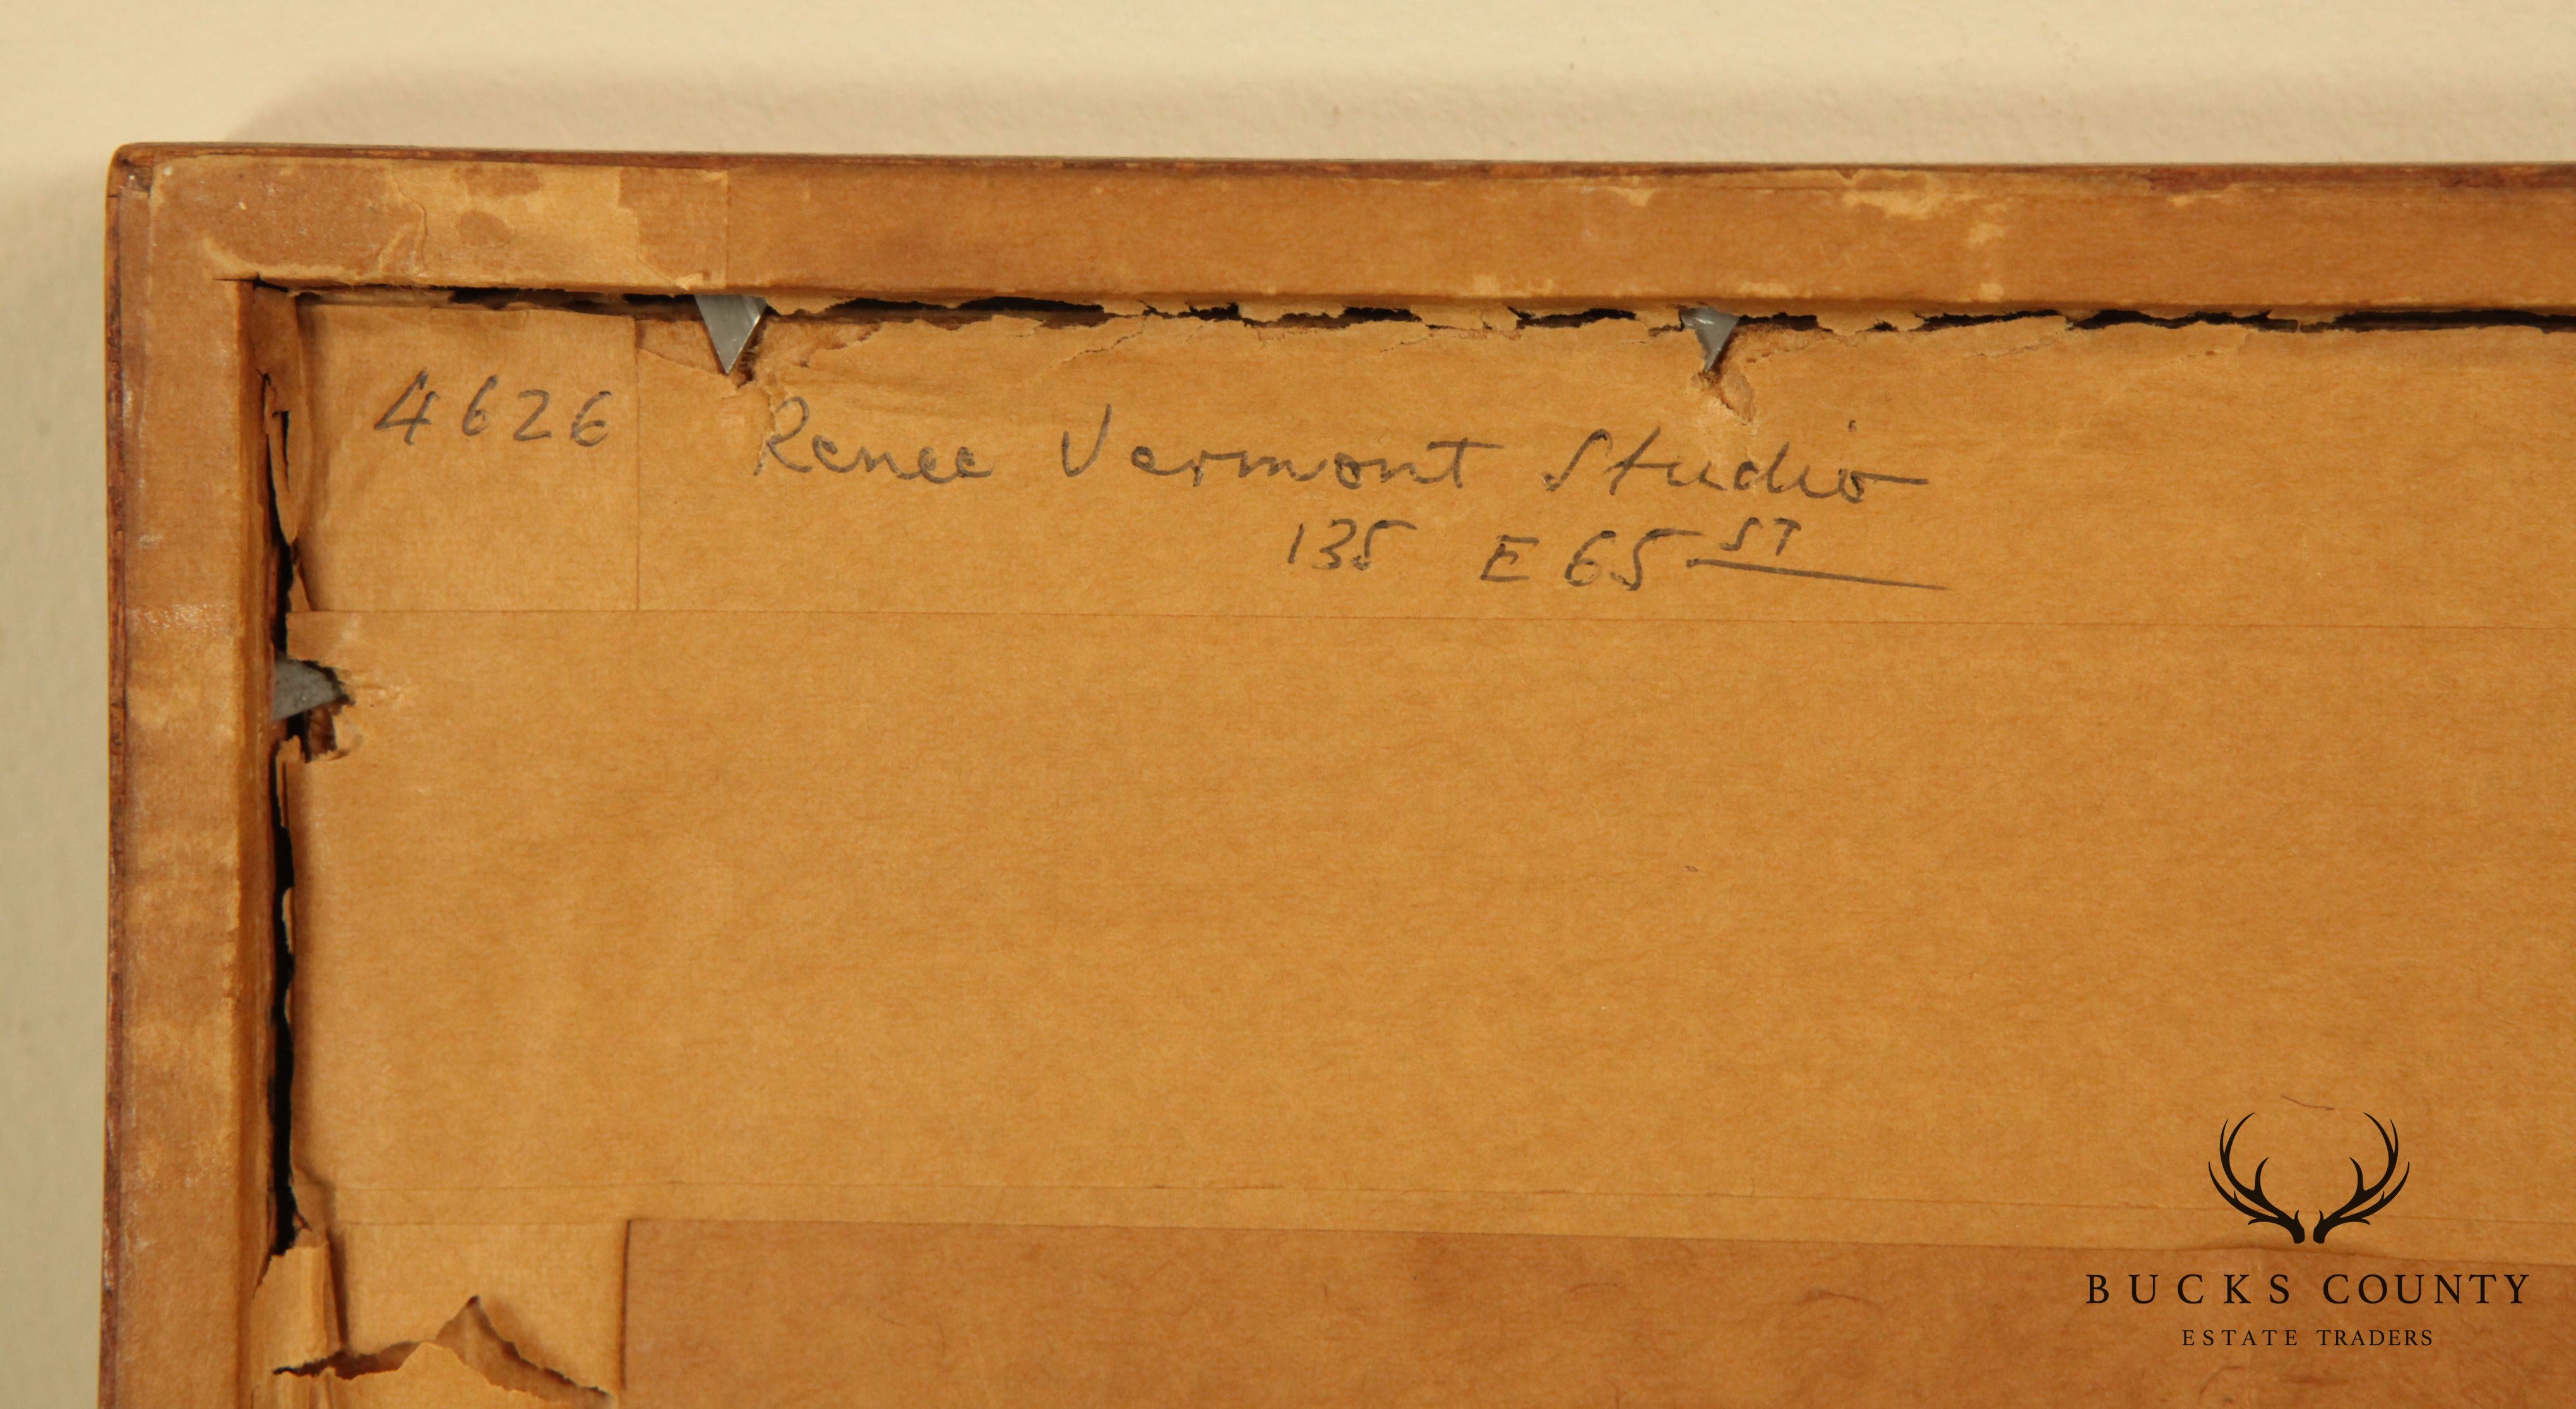 4626 Renee Vermont Studio
135 E 65 ST
BUCKS COUNTY
ESTATE TRADERS